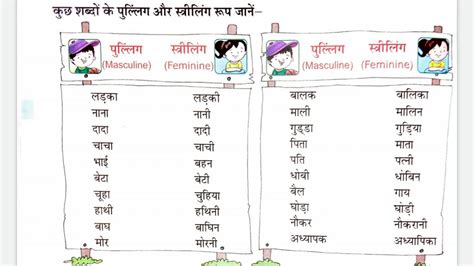 कुछ शब्दों के पुल्लिंग और स्त्रीलिंग रूप जानें–
पुल्लिंग स्त्रीलिंग
(Masculine) (Feminine)
लड़का लड़की
नाना नानी
दादा दादी
चाचा चाची
भाई बहन
बेटा बेटी
चूहा चुहिया
हाथी हथिनी
बाघ बाघिन
मोर मोरनी
पुल्लिंग स्त्रीलिंग
(Masculine) (Feminine)
बालक बालिका
माली मालिन
गुड्डा गुड़िया
पिता माता
पति पत्नी
धोबी धोबिन
बैल गाय
घोड़ी घोड़ी
नौकर नौकरानी
अध्यापक अध्यापिका